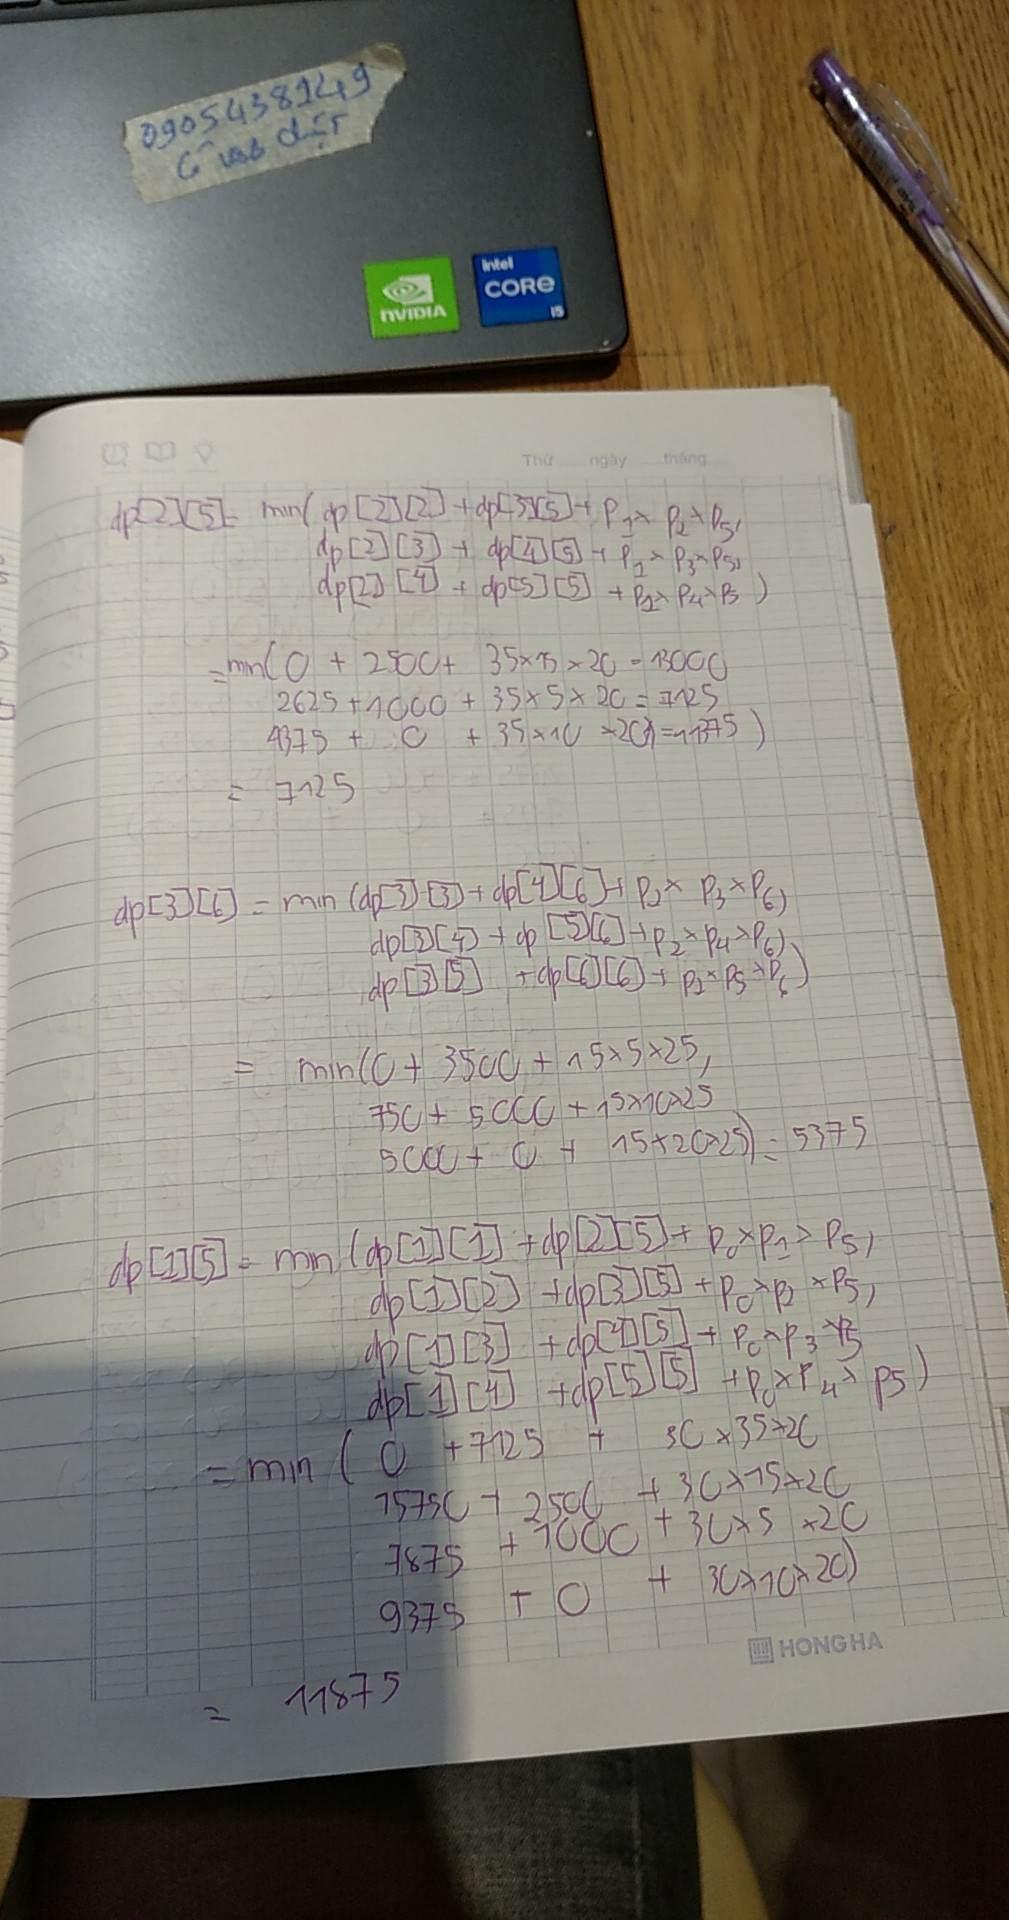 0905438149
intel
CORE
i5
NVIDIA
Thứ ngày tháng
dp[2][5] = min(dp[2][2] + dp[3][5] + P1 × P2 × P5,
dp[2][3] + dp[4][5] + P1 × P3 × P5,
dp[2][4] + dp[5][5] + P1 × P4 × P5)
= min(0 + 2500 + 35×15×20 = 13000
2625 + 1000 + 35×5×20 = 7125
4375 + 0 + 35×10×20) = 11375)
= 7125
dp[3][6] = min(dp[3][3] + dp[4][6] + P2 × P3 × P6,
dp[3][4] + dp[5][6] + P2 × P4 × P6,
dp[3][5] + dp[6][6] + P2 × P5 × P6)
= min(0 + 3500 + 15×5×25,
750 + 5000 + 15×10×25
5000 + 0 + 15×20×25) = 5375
dp[1][5] = min(dp[1][1] + dp[2][5] + P0 × P1 × P5,
dp[1][2] + dp[3][5] + P0 × P2 × P5,
dp[1][3] + dp[4][5] + P0 × P3 × P5
dp[1][4] + dp[5][5] + P0 × P4 × P5)
= min(0 + 7125 + 30×35×20
15750 + 2500 + 30×15×20
7875 + 1000 + 30×5×20
9375 + 0 + 30×10×20)
HONG HA
= 11875